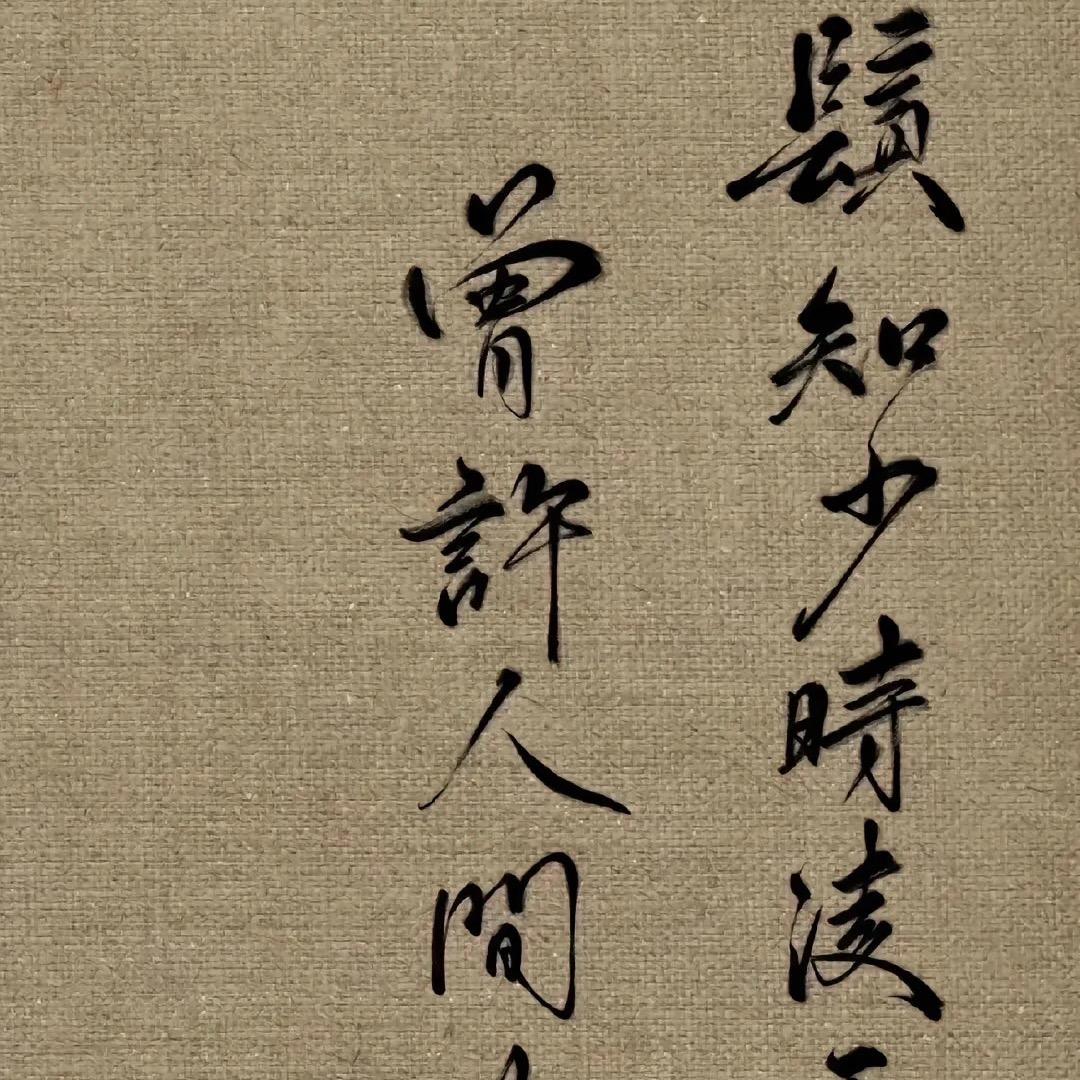 鬚知少時凌
曾許人間